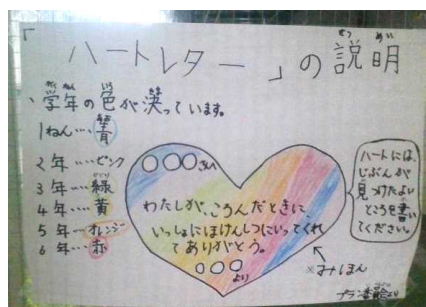 「ハートレター」の説明
学年の色が決っています。
1ねん…青
2年…ピンク
3年…緑
4年…黄
5年…オレンジ
6年…赤
○○○さんへ
わたしが、ころんだときに
いっしょにほけんしつにいってくれ
てありがとう。
○○○より
※みほん
ハートには、
じぶんが
見つけたよい
ところを書い
てください。